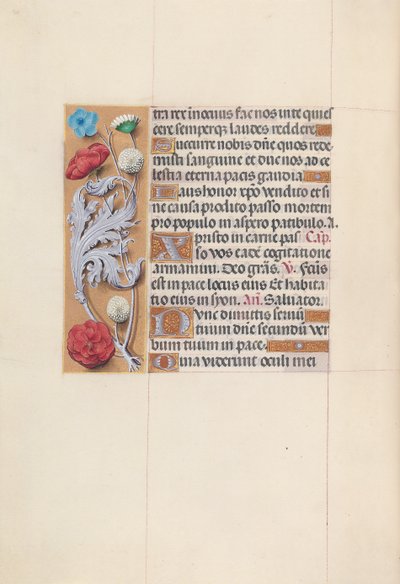 tra rex in œvis fac nos inte quies
cere semperq; laudes reddere
Succurre nobis dñe quos rede
misti sanguine et duc nos ad ce
lestia eterna pacis gaudia
Laus honor xpo vendito et si
ne causa prodito passo mortem
pro populo in aspero patibulo. A.
Xpristo in carne pas Cap.
so vos eadē cogitatione
armamini. Deo grãs. V. Fcũs
est in pace locus eius Et habita
tio eius in syon. Añ. Salvator.
Nunc dimittis servũ
tuum dñe secundũ ver
bum tuum in pace
Quia viderunt oculi mei